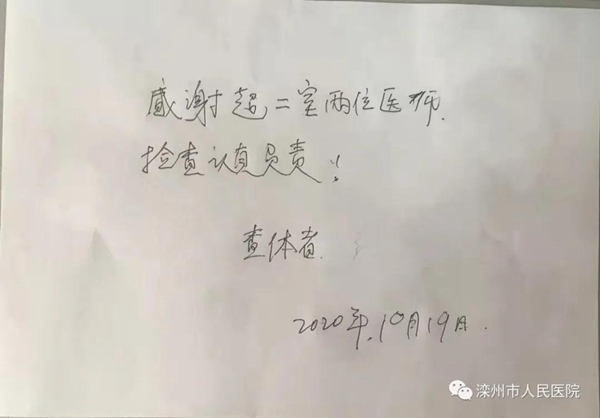 感谢超二室两位医师.
检查认真负责！
查体者
2020年.10月19日.
滦州市人民医院